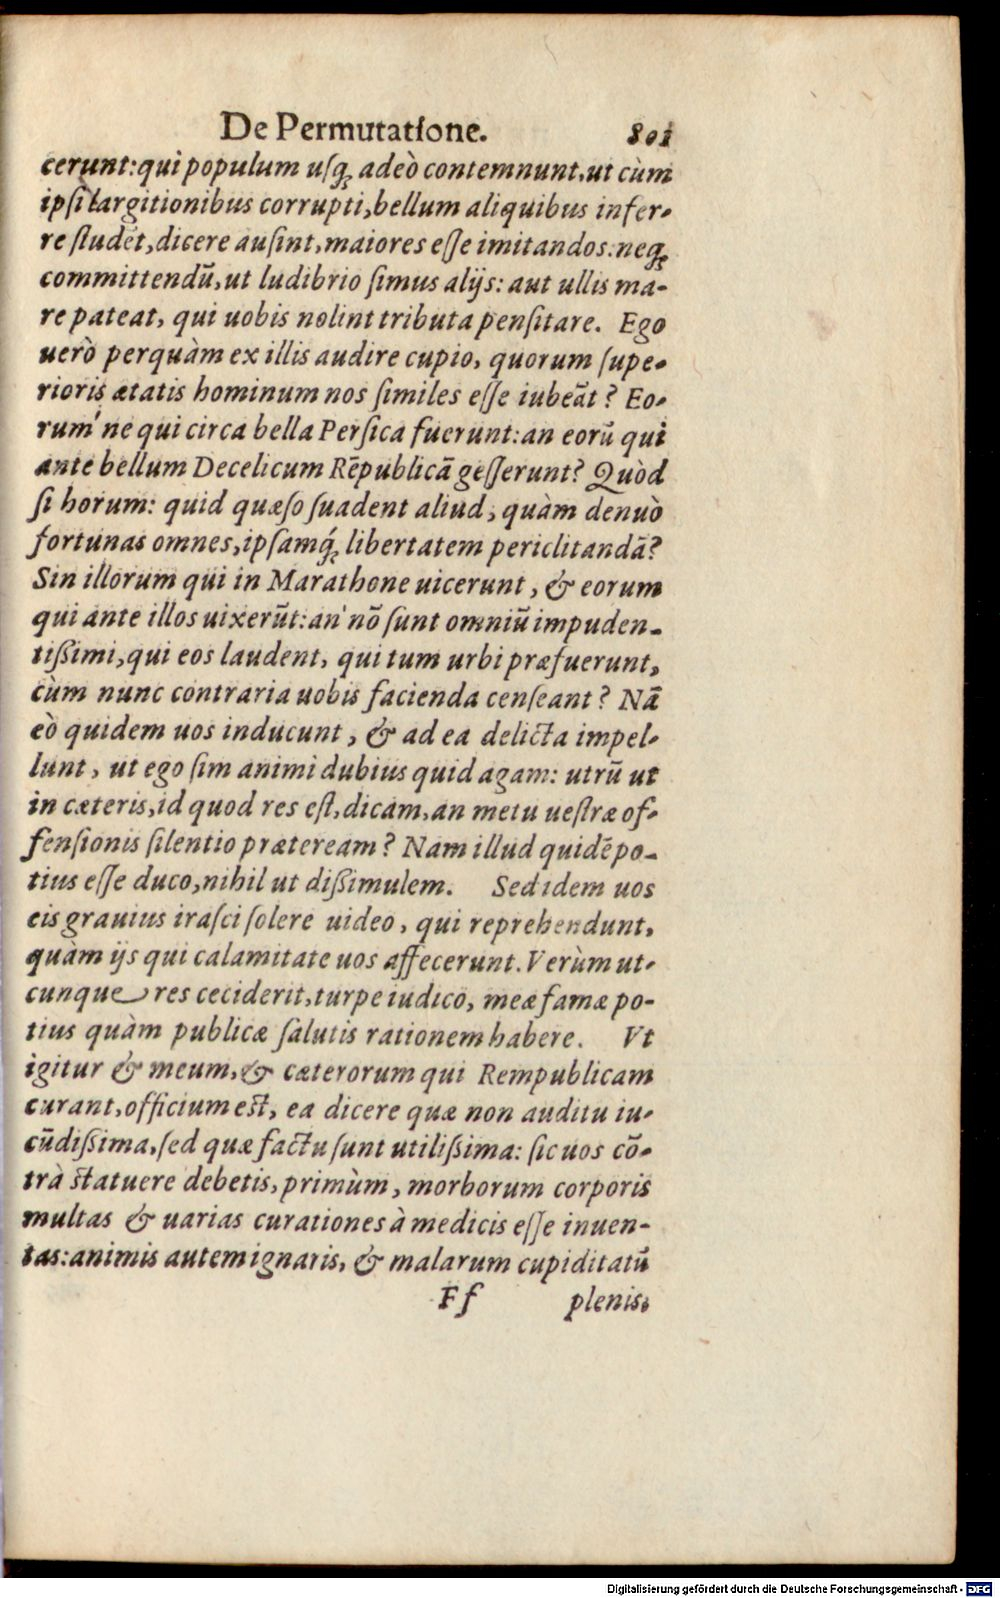 De Permutatione. 801
cerunt: qui populum uſq; adeò contemnunt, ut cùm
ipſi largitionibus corrupti, bellum aliquibus infer-
re ſtudẽt, dicere auſint, maiores eſſe imitandos: neq;
committendũ, ut ludibrio ſimus alijs: aut ullis ma-
re pateat, qui uobis nolint tributa penſitare. Ego
uerò perquàm ex illis audire cupio, quorum ſupe-
rioris ætatis hominum nos ſimiles eſſe iubeãt? Eo-
rum´ne qui circa bella Perſica fuerunt: an eorũ qui
ante bellum Decelicum Rẽpublicã geſſerunt? Quòd
ſi horum: quid quæſo ſuadent aliud, quàm denuò
fortunas omnes, ipſamq́; libertatem periclitandã?
Sin illorum qui in Marathone uicerunt, & eorum
qui ante illos uixerũt: an´ nõ ſunt omniũ impuden-
tißimi, qui eos laudent, qui tum urbi præfuerunt,
cùm nunc contraria uobis facienda cenſeant? Nã
eò quidem uos inducunt, & ad ea delicta impel-
lunt, ut ego ſim animi dubius quid agam: utrũ ut
in cæteris, id quod res eſt, dicam, an metu ueſtræ of-
fenſionis ſilentio præteream? Nam illud quidẽ po-
tius eſſe duco, nihil ut dißimulem. Sed idem uos
eis grauius iraſci ſolere uideo, qui reprehendunt,
quàm ijs qui calamitate uos affecerunt. Verùm ut-
cunque res ceciderit, turpe iudico, meæ famæ po-
tius quàm publicæ ſalutis rationem habere. Vt
igitur & meum, & cæterorum qui Rempublicam
curant, officium eſt, ea dicere quæ non auditu iu-
cũdißima, ſed quæ factu ſunt utilißima: ſic uos cõ-
trà ſtatuere debetis, primùm, morborum corporis
multas & uarias curationes à medicis eſſe inuen-
tas: animis autem ignaris, & malarum cupiditatũ
Ff plenis,
Digitalisierung gefördert durch die Deutsche Forschungsgemeinschaft - DFG